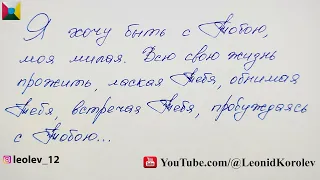 Я хочу быть с Тобою,
моя милая. Всю свою жизнь
прожить, лаская Тебя, обнимая
Тебя, встречая Тебя, пробуждаясь
с Тобою...
leolev_12
YouTube.com/@LeonidKorolev